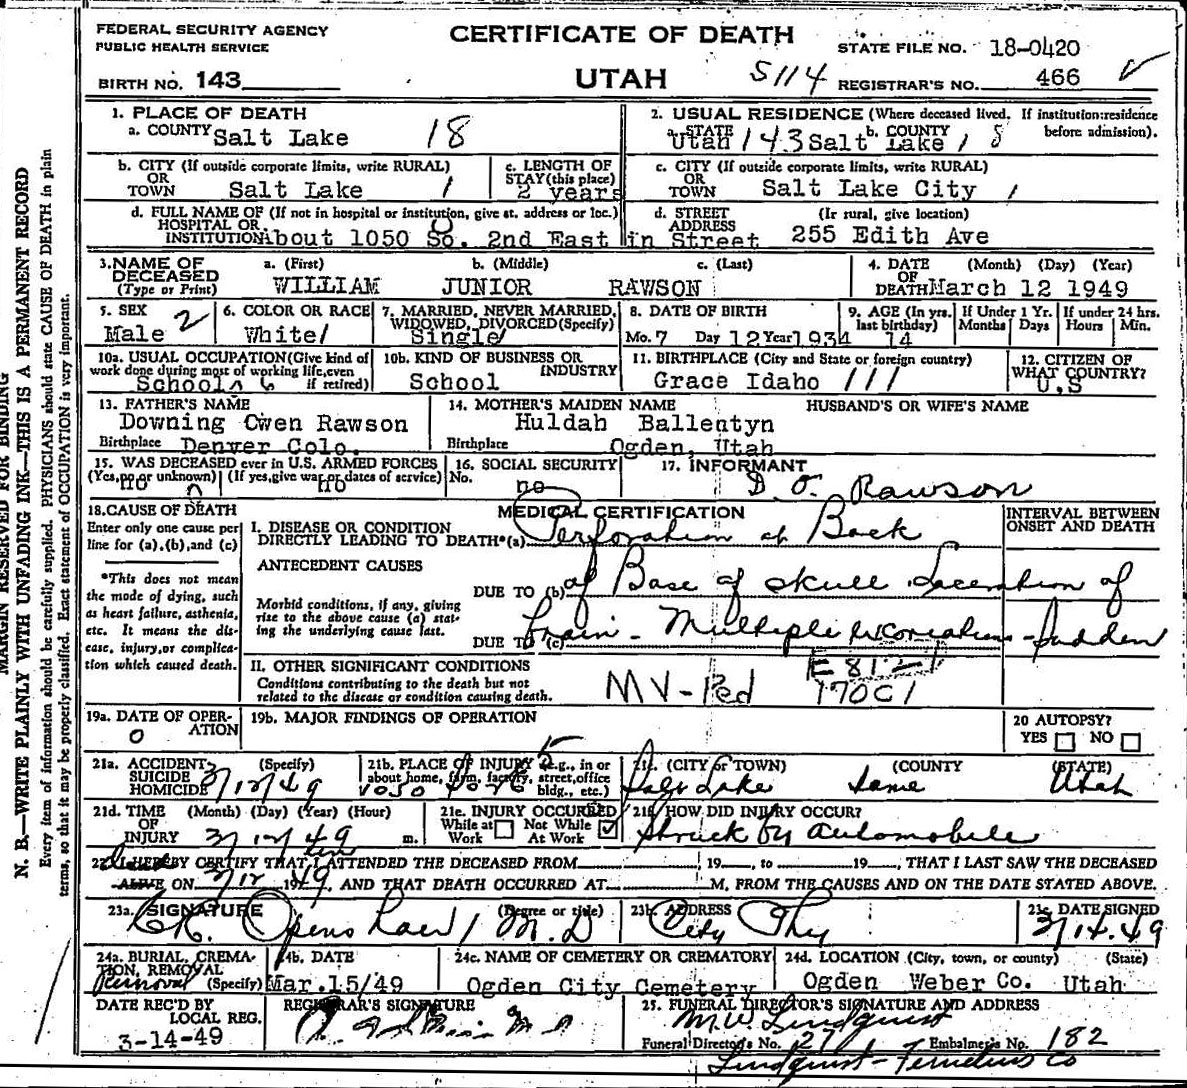 FEDERAL SECURITY AGENCY
PUBLIC HEALTH SERVICE
CERTIFICATE OF DEATH
STATE FILE NO. 18-0420
BIRTH NO. 143
UTAH
5114
REGISTRAR'S NO. 466
MARGIN RESERVED FOR BINDING
N. B.—WRITE PLAINLY WITH UNFADING INK—THIS IS A PERMANENT RECORD
Every item of information should be carefully supplied. PHYSICIANS should state CAUSE OF DEATH in plain
terms, so that it may be properly classified. Exact statement of OCCUPATION is very important.
1. PLACE OF DEATH
a. COUNTY Salt Lake 18
2. USUAL RESIDENCE (Where deceased lived. If institution:residence
before admission).
a. STATE Utah 143 b. COUNTY Salt Lake 18
b. CITY (If outside corporate limits, write RURAL)
OR
TOWN Salt Lake 1
c. LENGTH OF
STAY (this place)
2 years
c. CITY (If outside corporate limits, write RURAL)
OR
TOWN Salt Lake City 1
d. FULL NAME OF (If not in hospital or institution, give st. address or loc.)
HOSPITAL OR
INSTITUTION About 1050 So. 2nd East in Street
d. STREET
ADDRESS
(If rural, give location)
255 Edith Ave
3. NAME OF
DECEASED
(Type or Print)
a. (First) b. (Middle) c. (Last)
WILLIAM JUNIOR RAWSON
4. DATE (Month) (Day) (Year)
OF
DEATH March 12 1949
5. SEX
Male 2
6. COLOR OR RACE
White/
7. MARRIED, NEVER MARRIED,
WIDOWED, DIVORCED (Specify)
Single/
8. DATE OF BIRTH
Mo. 7 Day 12 Year 1934
9. AGE (In yrs.
last birthday)
14
If Under 1 Yr.
Months Days
If under 24 hrs.
Hours Min.
10a. USUAL OCCUPATION (Give kind of
work done during most of working life, even
if retired)
School
10b. KIND OF BUSINESS OR
INDUSTRY
School
11. BIRTHPLACE (City and State or foreign country)
Grace Idaho 111
12. CITIZEN OF
WHAT COUNTRY?
U.S
13. FATHER'S NAME
Downing Owen Rawson
Birthplace Denver Colo.
14. MOTHER'S MAIDEN NAME
Huldah Ballentyn
Birthplace Ogden, Utah
HUSBAND'S OR WIFE'S NAME
15. WAS DECEASED ever in U.S. ARMED FORCES
(Yes, no or unknown) (If yes, give war or dates of service)
no no
16. SOCIAL SECURITY
No. no
17. INFORMANT
D. O. Rawson
18. CAUSE OF DEATH
Enter only one cause per
line for (a), (b), and (c)
*This does not mean
the mode of dying, such
as heart failure, asthenia,
etc. It means the dis-
ease, injury, or complica-
tion which caused death.
MEDICAL CERTIFICATION
INTERVAL BETWEEN
ONSET AND DEATH
I. DISEASE OR CONDITION
DIRECTLY LEADING TO DEATH*(a) Perforation at Back
ANTECEDENT CAUSES
DUE TO (b) of Base of Skull Laceration of
Morbid conditions, if any, giving
rise to the above cause (a) stat-
ing the underlying cause last.
DUE TO (c) Brain - Multiple excoriations - Sudden
E 812
II. OTHER SIGNIFICANT CONDITIONS
Conditions contributing to the death but not
related to the disease or condition causing death.
MV-Ped 170C1
19a. DATE OF OPER-
ATION
0
19b. MAJOR FINDINGS OF OPERATION
20 AUTOPSY?
YES NO
21a. ACCIDENT (Specify)
SUICIDE
HOMICIDE
3/12/49
21b. PLACE OF INJURY (e.g., in or
about home, farm, factory, street, office
bldg., etc.)
1050 So
21c. (CITY or TOWN) (COUNTY) (STATE)
Salt Lake Same Utah
21d. TIME (Month) (Day) (Year) (Hour)
OF
INJURY 3/12/49 m.
21e. INJURY OCCURRED
While at Work Not While At Work
21f. HOW DID INJURY OCCUR?
Struck by automobile
22. I HEREBY CERTIFY THAT I ATTENDED THE DECEASED FROM 19 , to 19 , THAT I LAST SAW THE DECEASED
ALIVE ON 3/12 1949, AND THAT DEATH OCCURRED AT M, FROM THE CAUSES AND ON THE DATE STATED ABOVE.
23a. SIGNATURE (Degree or title)
M.D
23b. ADDRESS
City Phy
23c. DATE SIGNED
3/14.49
24a. BURIAL, CREMA-
TION, REMOVAL
(Specify)
Removal
24b. DATE
Mar.15/49
24c. NAME OF CEMETERY OR CREMATORY
Ogden City Cemetery
24d. LOCATION (City, town, or county) (State)
Ogden Weber Co. Utah
DATE REC'D BY
LOCAL REG.
3-14-49
REGISTRAR'S SIGNATURE
25. FUNERAL DIRECTOR'S SIGNATURE AND ADDRESS
M.W. Lindquist
Funeral Director's No. 27 Embalmer's No. 182
Lindquist-Fernelius Co